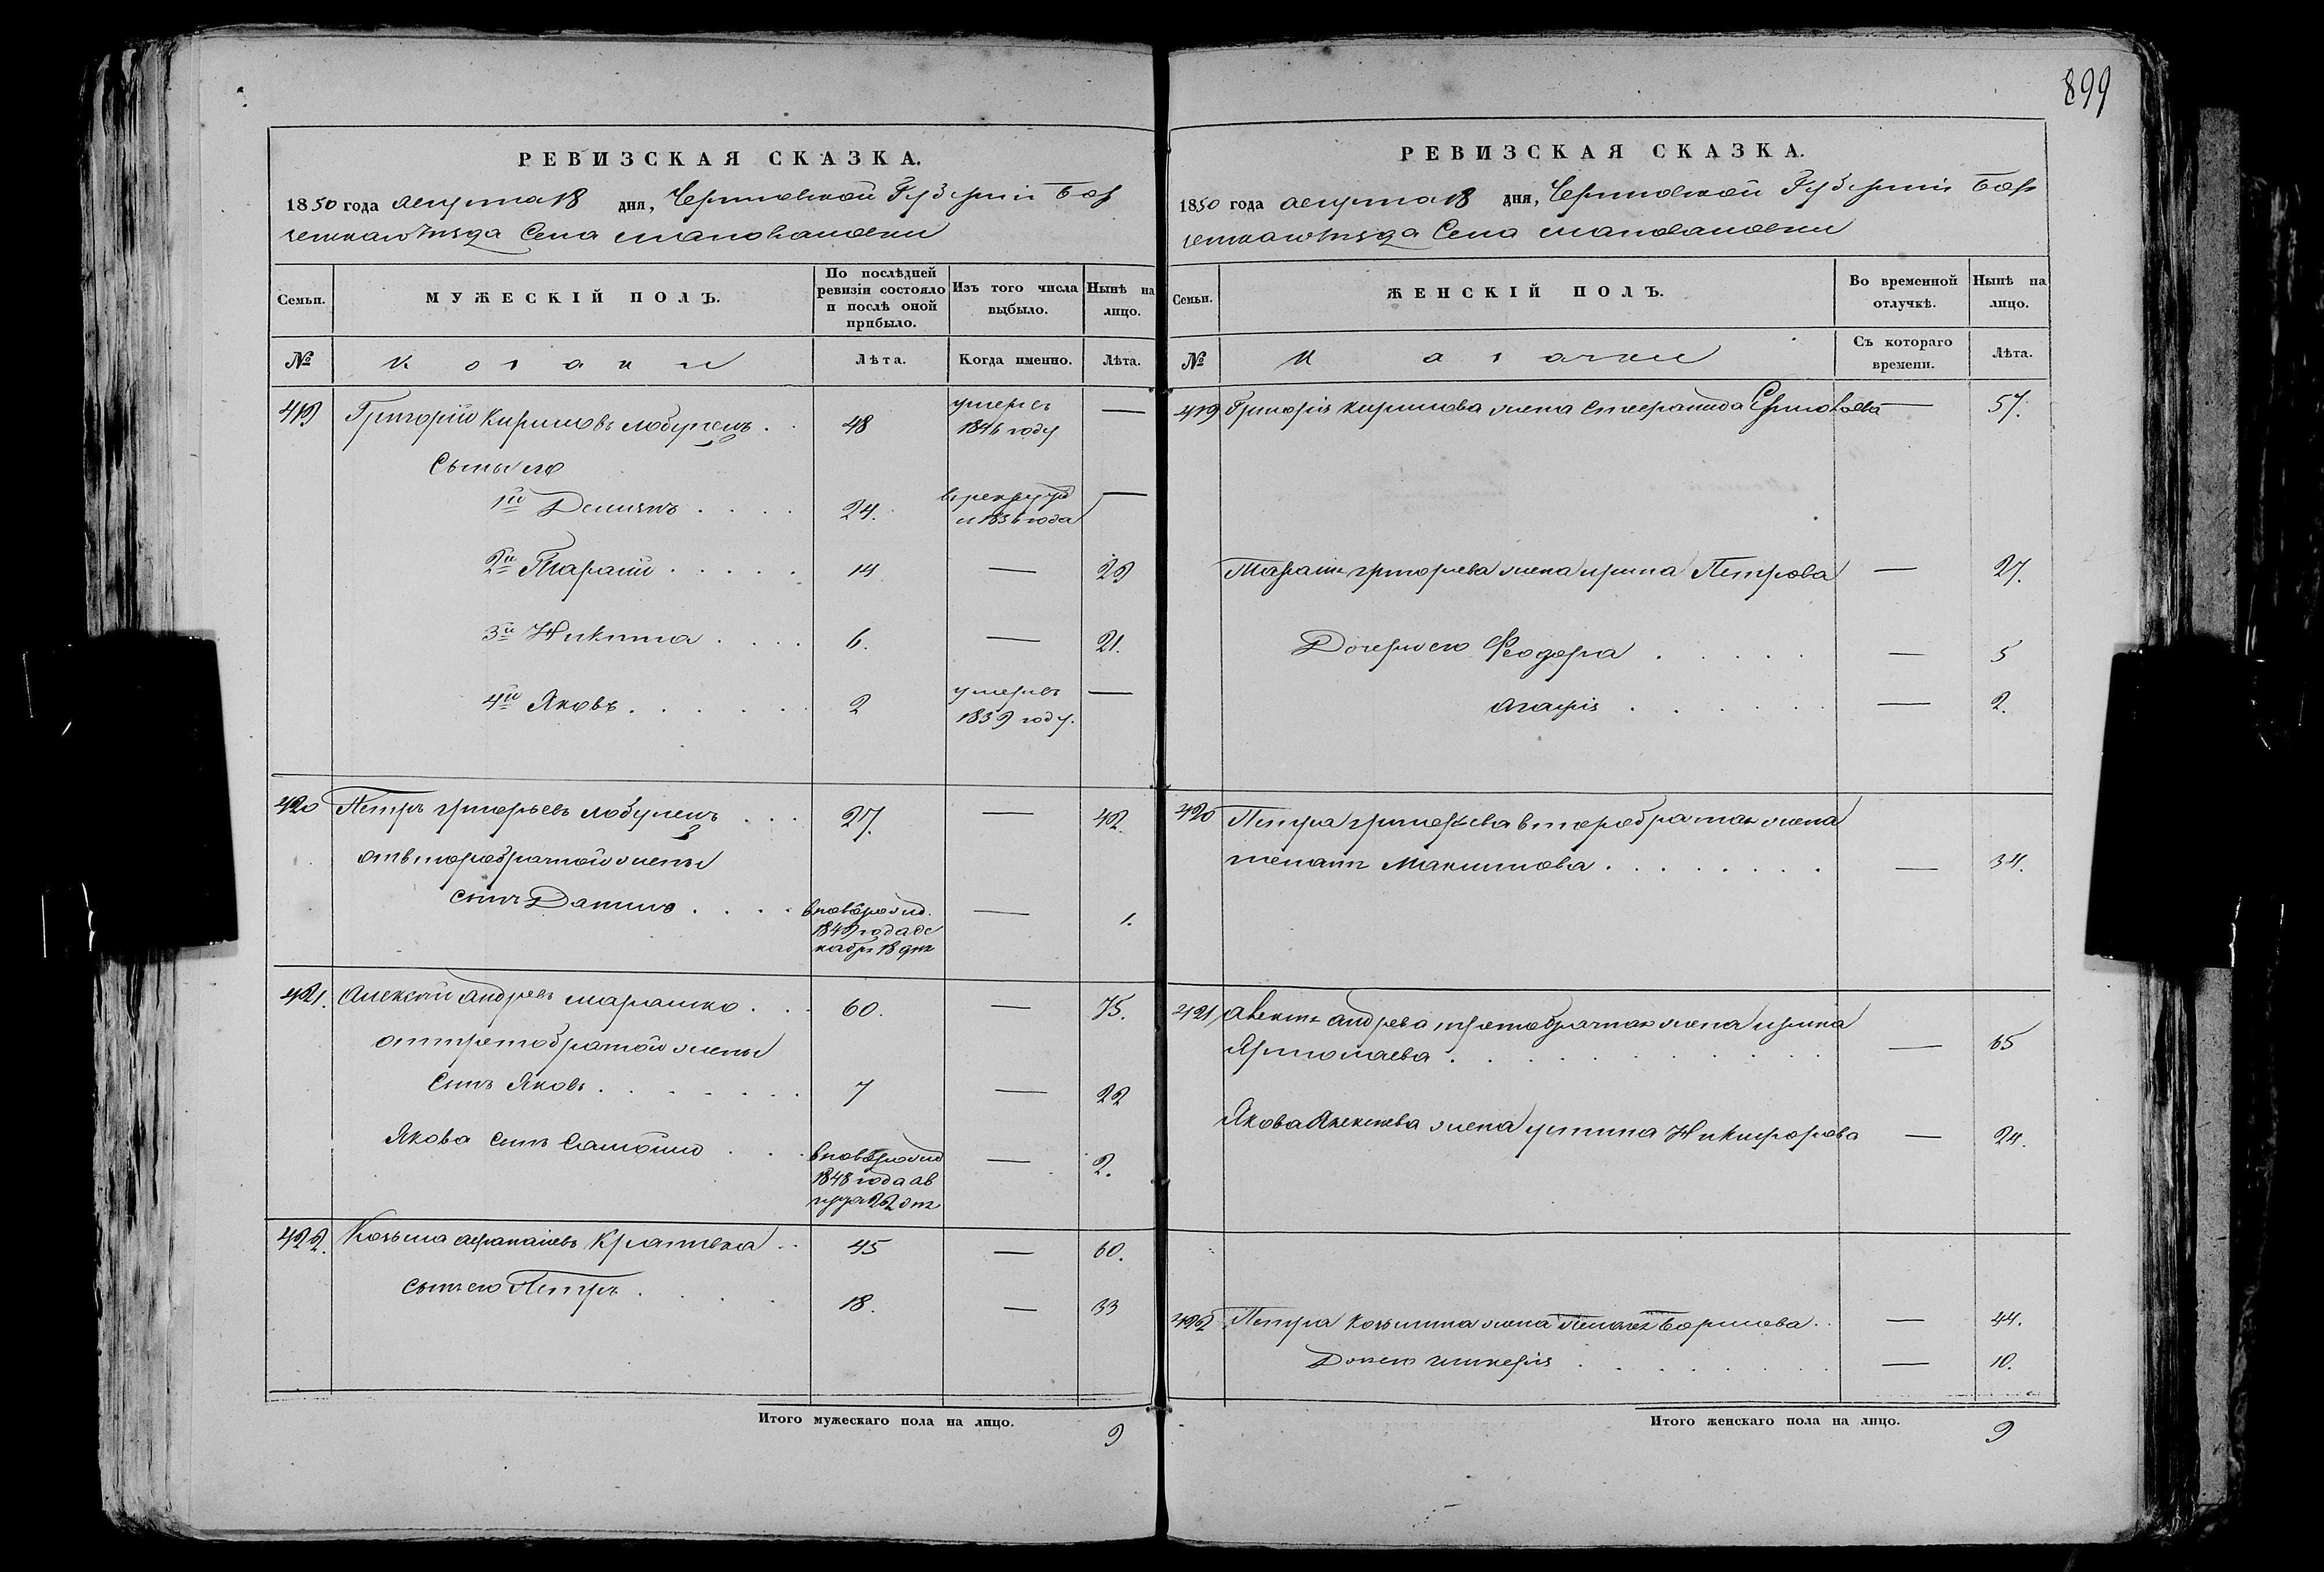 899
РЕВИЗСКАЯ СКАЗКА.
1850 года августа 18 дня, Черниговской Губернии Бор
зенскаго уезда Села
Семьи.
МУЖЕСКІЙ ПОЛЪ.
По послѣдней ревизіи состояло и послѣ оной прибыло.
Изъ того числа выбыло.
Нынѣ на лицо.
№
козаки
Лѣта.
Когда именно.
Лѣта.
419 Григорій Кириловъ 48 умеръ 1846 году —
Сыны его
1й Демьянъ 24. в рекруты 1836 года —
2й Тарасій 14 — 29
3й Никита 6. — 21.
4й Яковъ 2 умеръ 1839 году. —
420 Петръ Григорьевъ 27. — 42.
от второбрачной жены
сынъ Данило вновь рожд. 1849 года декабря 18 дня — 1.
421. Алексѣй Андреевъ Марашко 60. — 75.
от третобрачной жены
Сынъ Яковъ 7 — 22
Якова сынъ Самойло вновь рожд 1848 года августа 22 дня — 2.
422. Козьма Афанасіевъ 45 — 60.
сынъ его Петръ 18. — 33
Итого мужескаго пола на лицо.
9
РЕВИЗСКАЯ СКАЗКА.
1850 года августа 18 дня, Черниговской Губернии Бор
зенскаго уезда Села
Семьи.
ЖЕНСКІЙ ПОЛЪ.
Во временной отлучкѣ.
Нынѣ на лицо.
№
козачки
Съ котораго времени.
Лѣта.
419 Григорія Кирилова жена Степанида — 57.
Тарасія Григорьева жена Ирина Петрова — 27.
Дочери его Феодора — 5
Агафія — 2.
420 Петра Григорьева второбрачная жена
Максимова — 34.
421 Алексѣя Андреева третобрачная жена Ирина
— 65
Якова Алексѣева жена Устина Никифорова — 24.
422 Петра Козьмина жена Пелагея Борисова — 44.
Дочь его Гликерія — 10.
Итого женскаго пола на лицо.
9